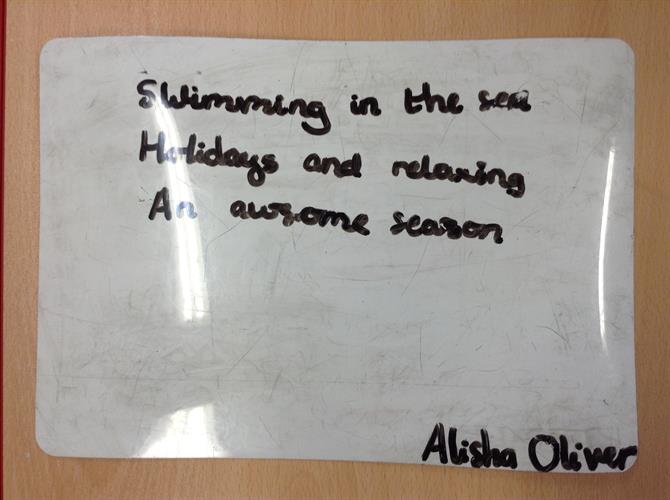 Swimming in the sea
Holidays and relaxing
An awsome season
Alisha Oliver